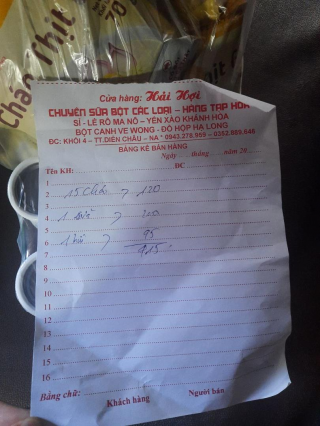 Cháo Thịt
70
Cửa hàng: Hải Hợi
CHUYÊN SỮA BỘT CÁC LOẠI - HÀNG TẠP HÓA
SỈ - LẺ RÔ MA NÔ - YẾN XÀO KHÁNH HÒA
BỘT CANH VE WONG - ĐỒ HỘP HẠ LONG
ĐC: KHỐI 4 - TT.DIỄN CHÂU - NA * 0943.276.955 - 0362.889.648
BẢNG KÊ BÁN HÀNG
Ngày ...... tháng ...... năm 20...
Tên KH: ĐC
1
2 15 120
3
4 1
5
6 1 95
7
8
9
10
11
12
13
14
15
16
Bằng chữ:
Khách hàng Người bán